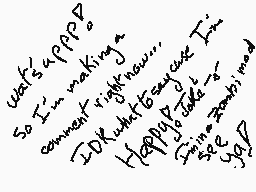 wat's uppp!
So I'm making a
comment right now...
IDK what to say cuse I'm
Happy! Jake
I'm in a zombi mod
see
ya!